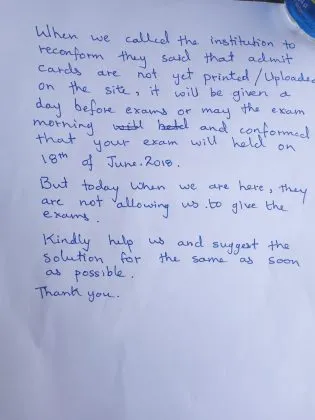 When we called the institution to
reconform they said that admit
cards are not yet printed/Uploaded
on the site, it will be given a
day before exams or may the exam
morning will held and conformed
that your exam will held on
18th of June.2018.
But today when we are here, they
are not allowing us to give the
exams.
Kindly help us and suggest the
solution for the same as soon
as possible.
Thank you.